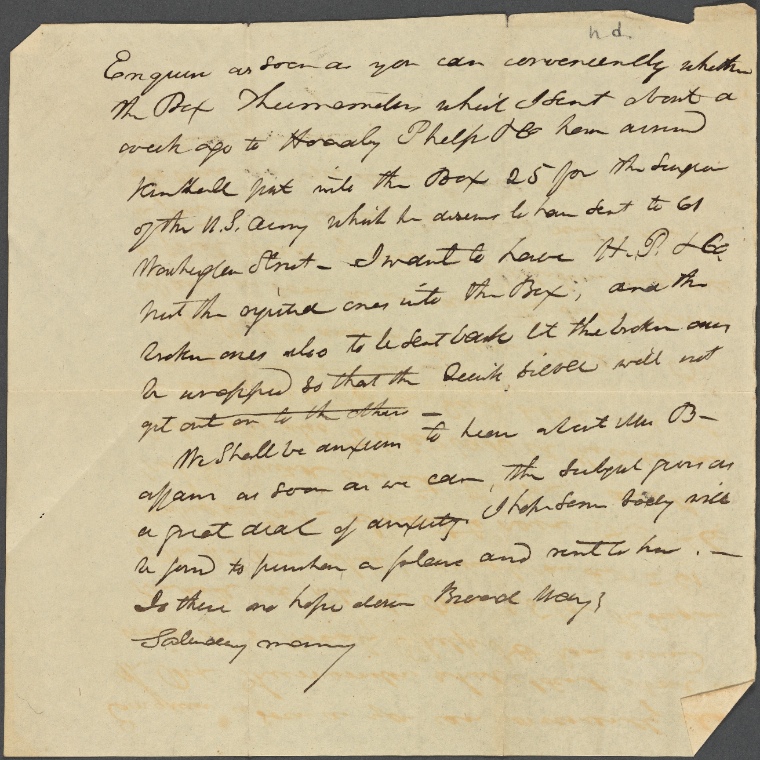 n.d.
Enquire as soon as you can conveniently whether
the Box Thermometers which I sent about a
week ago to Hoadly Phelps & Co have arrived
put into the Box 25 for the Surgeon
of the U.S. Army which he desires to have sent to 61
Washington Street – I want to have H. P. & Co.
the ones into the Box, and the
broken ones also to be sent back let the broken ones
be wrapped so that the Quick Silver will not
get out on to the others –
We Shall be anxious to hear about Mrs B–
affairs as soon as we can, the subject gives us
a great deal of anxiety. I hope some body will
be found to purchase a place and rent to her . –
Is there no hope down Broad Way?
Saturday morning